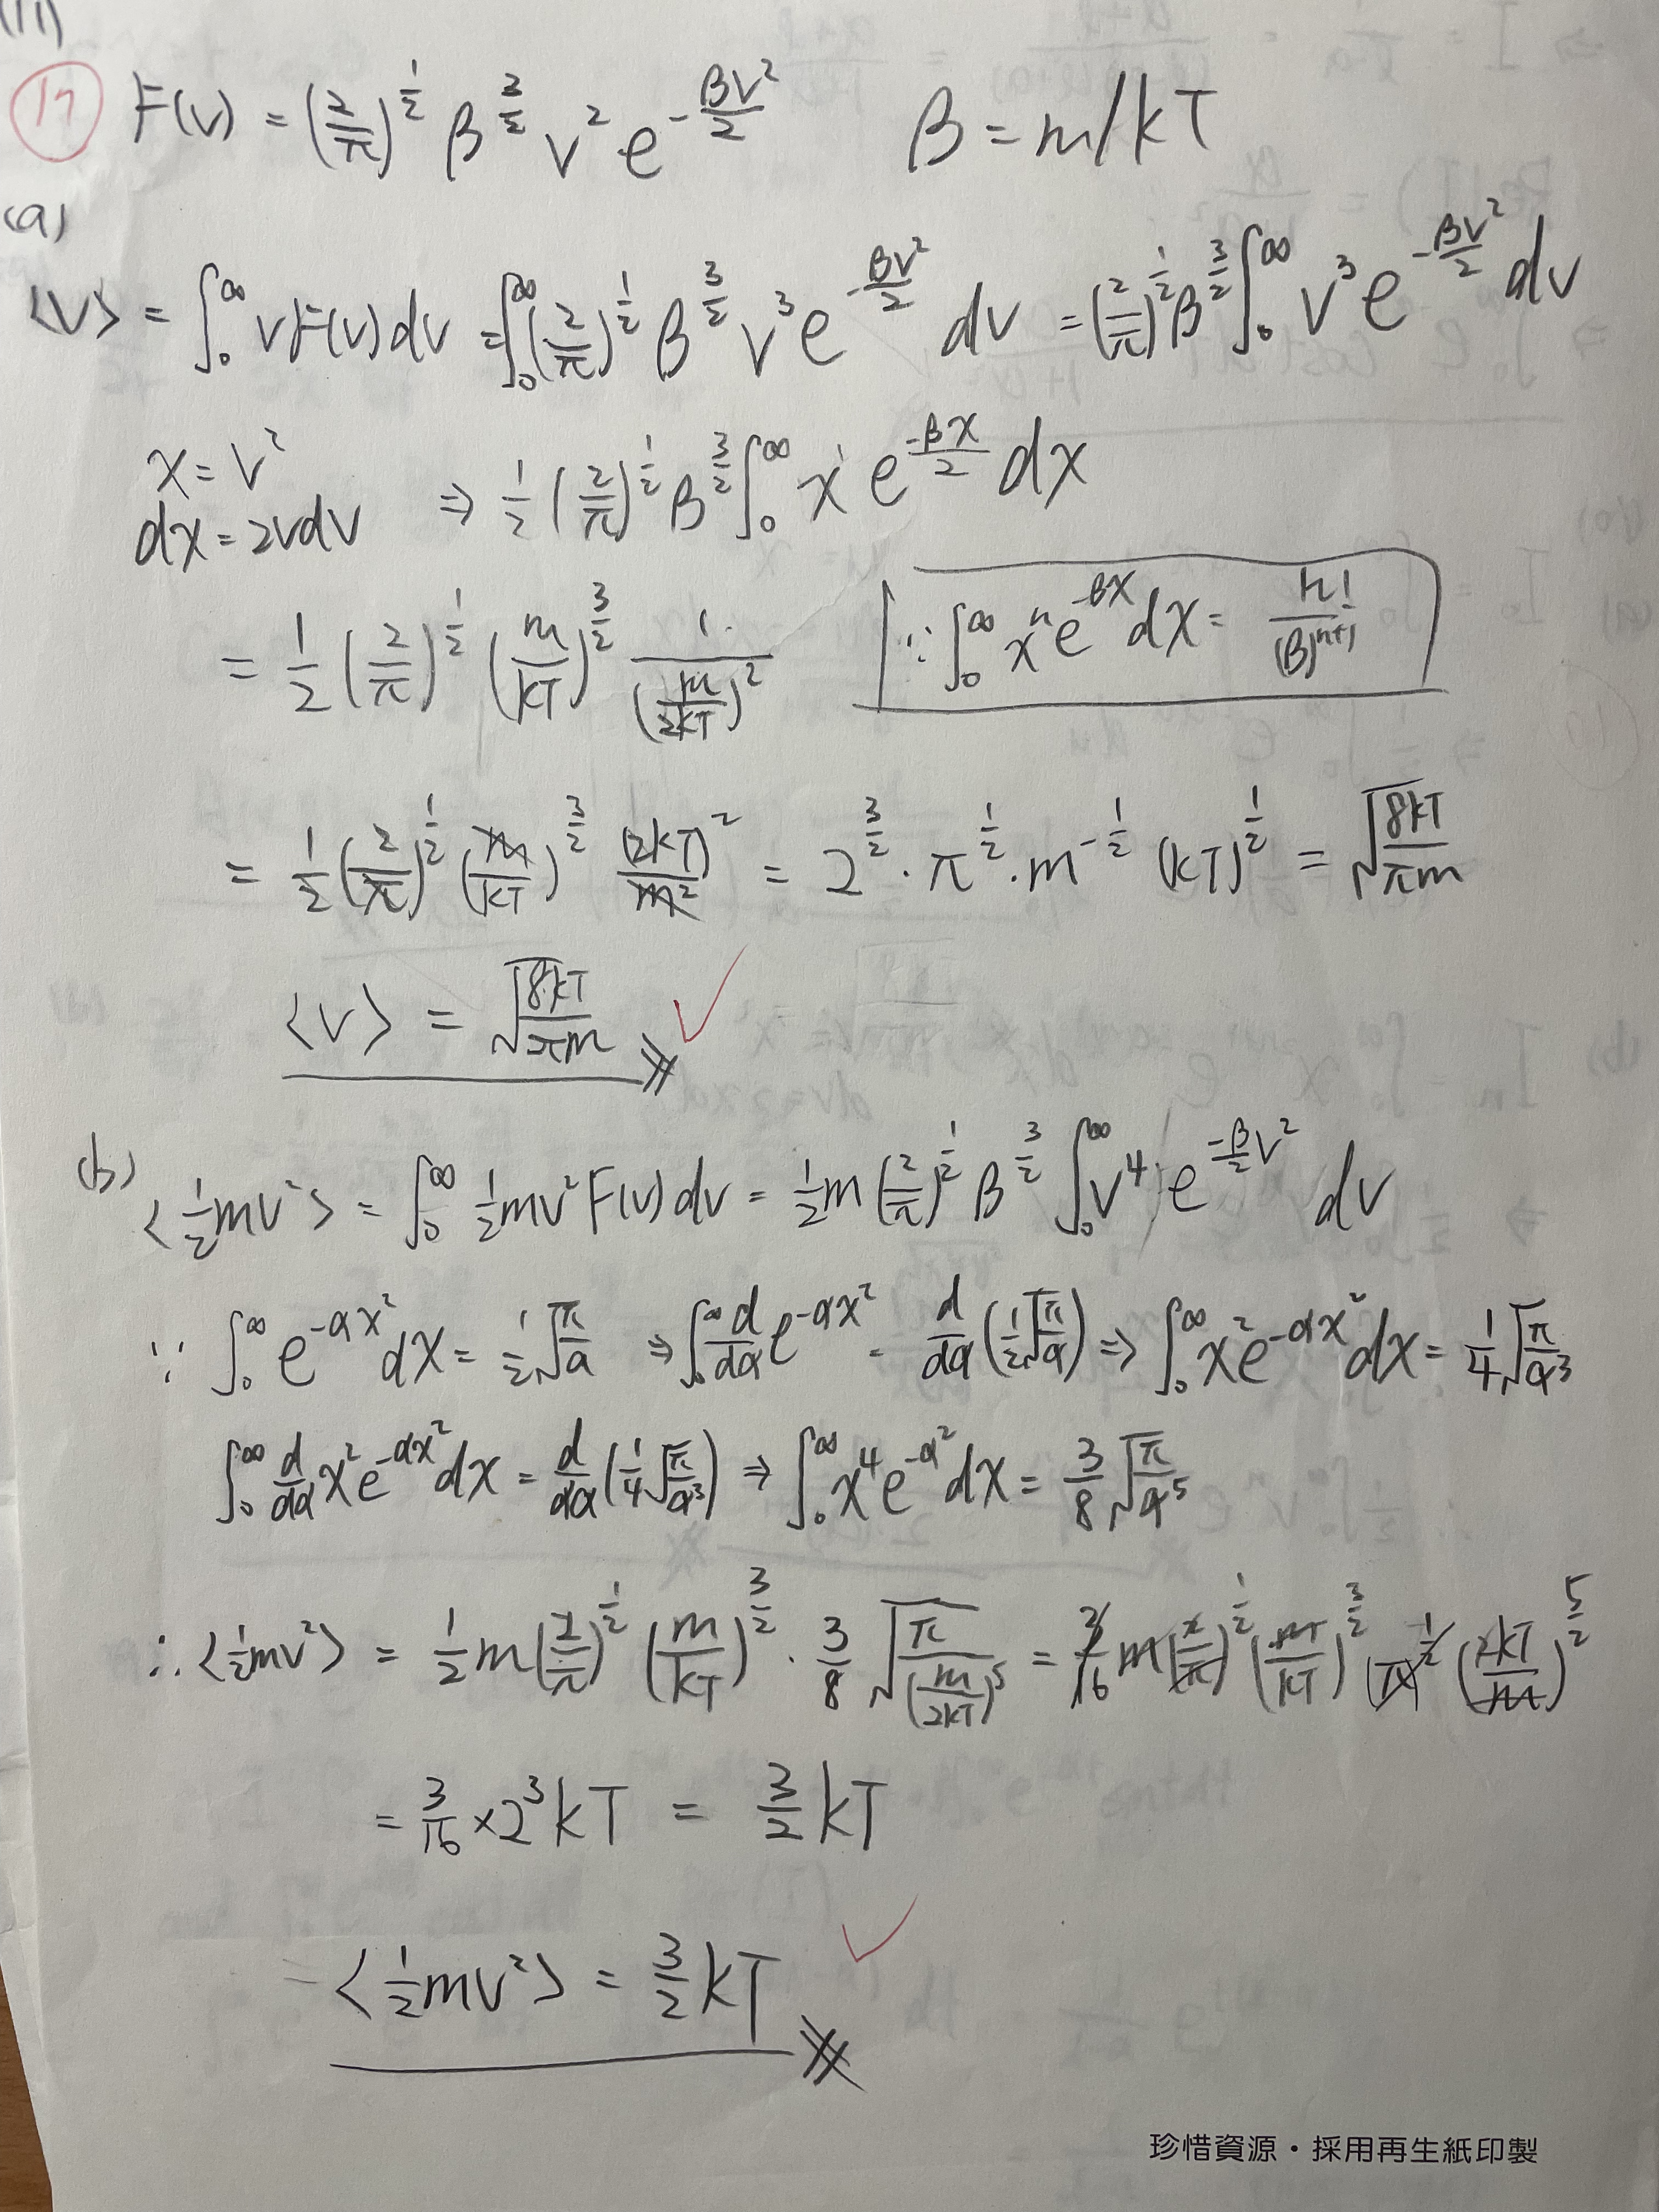 (11)
17 F(v) = (2/π)^{1/2} β^{3/2} v² e^{-βv²/2} β = m/kT
(a)
⟨v⟩ = ∫₀^∞ vF(v)dv = ∫₀^∞ (2/π)^{1/2} β^{3/2} v³ e^{-βv²/2} dv = (2/π)^{1/2} β^{3/2} ∫₀^∞ v³ e^{-βv²/2} dv
x = v²
dx = 2vdv ⇒ 1/2 (2/π)^{1/2} β^{3/2} ∫₀^∞ x¹ e^{-βx/2} dx
= 1/2 (2/π)^{1/2} (m/kT)^{3/2} 1/(m/2kT)² ∵ ∫₀^∞ xⁿ e^{-βx} dx = n!/(β)^{n+1}
= 1/2 (2/π)^{1/2} (m/kT)^{3/2} (2kT)²/m² = 2^{3/2} · π^{1/2} · m^{-1/2} (kT)^{1/2} = √(8kT/πm)
⟨v⟩ = √(8kT/πm)
(b) ⟨1/2 mv²⟩ = ∫₀^∞ 1/2 mv² F(v) dv = 1/2 m (2/π)^{1/2} β^{3/2} ∫₀^∞ v⁴ e^{-β/2 v²} dv
∵ ∫₀^∞ e^{-αx²} dx = 1/2 √(π/α) ⇒ ∫₀^∞ d/dα e^{-αx²} = d/dα (1/2 √(π/α)) ⇒ ∫₀^∞ x² e^{-αx²} dx = 1/4 √(π/α³)
∫₀^∞ d/dα x² e^{-αx²} dx = d/dα (1/4 √(π/α³)) ⇒ ∫₀^∞ x⁴ e^{-α²} dx = 3/8 √(π/α⁵)
∴ ⟨1/2 mv²⟩ = 1/2 m (2/π)^{1/2} (m/kT)^{3/2} · 3/8 √(π/(m/2kT)⁵) = 3/16 m (2/π)^{1/2} (m/kT)^{3/2} (π)^{1/2} (2kT/m)^{5/2}
= 3/16 × 2³ kT = 3/2 kT
⟨1/2 mv²⟩ = 3/2 kT
珍惜資源・採用再生紙印製